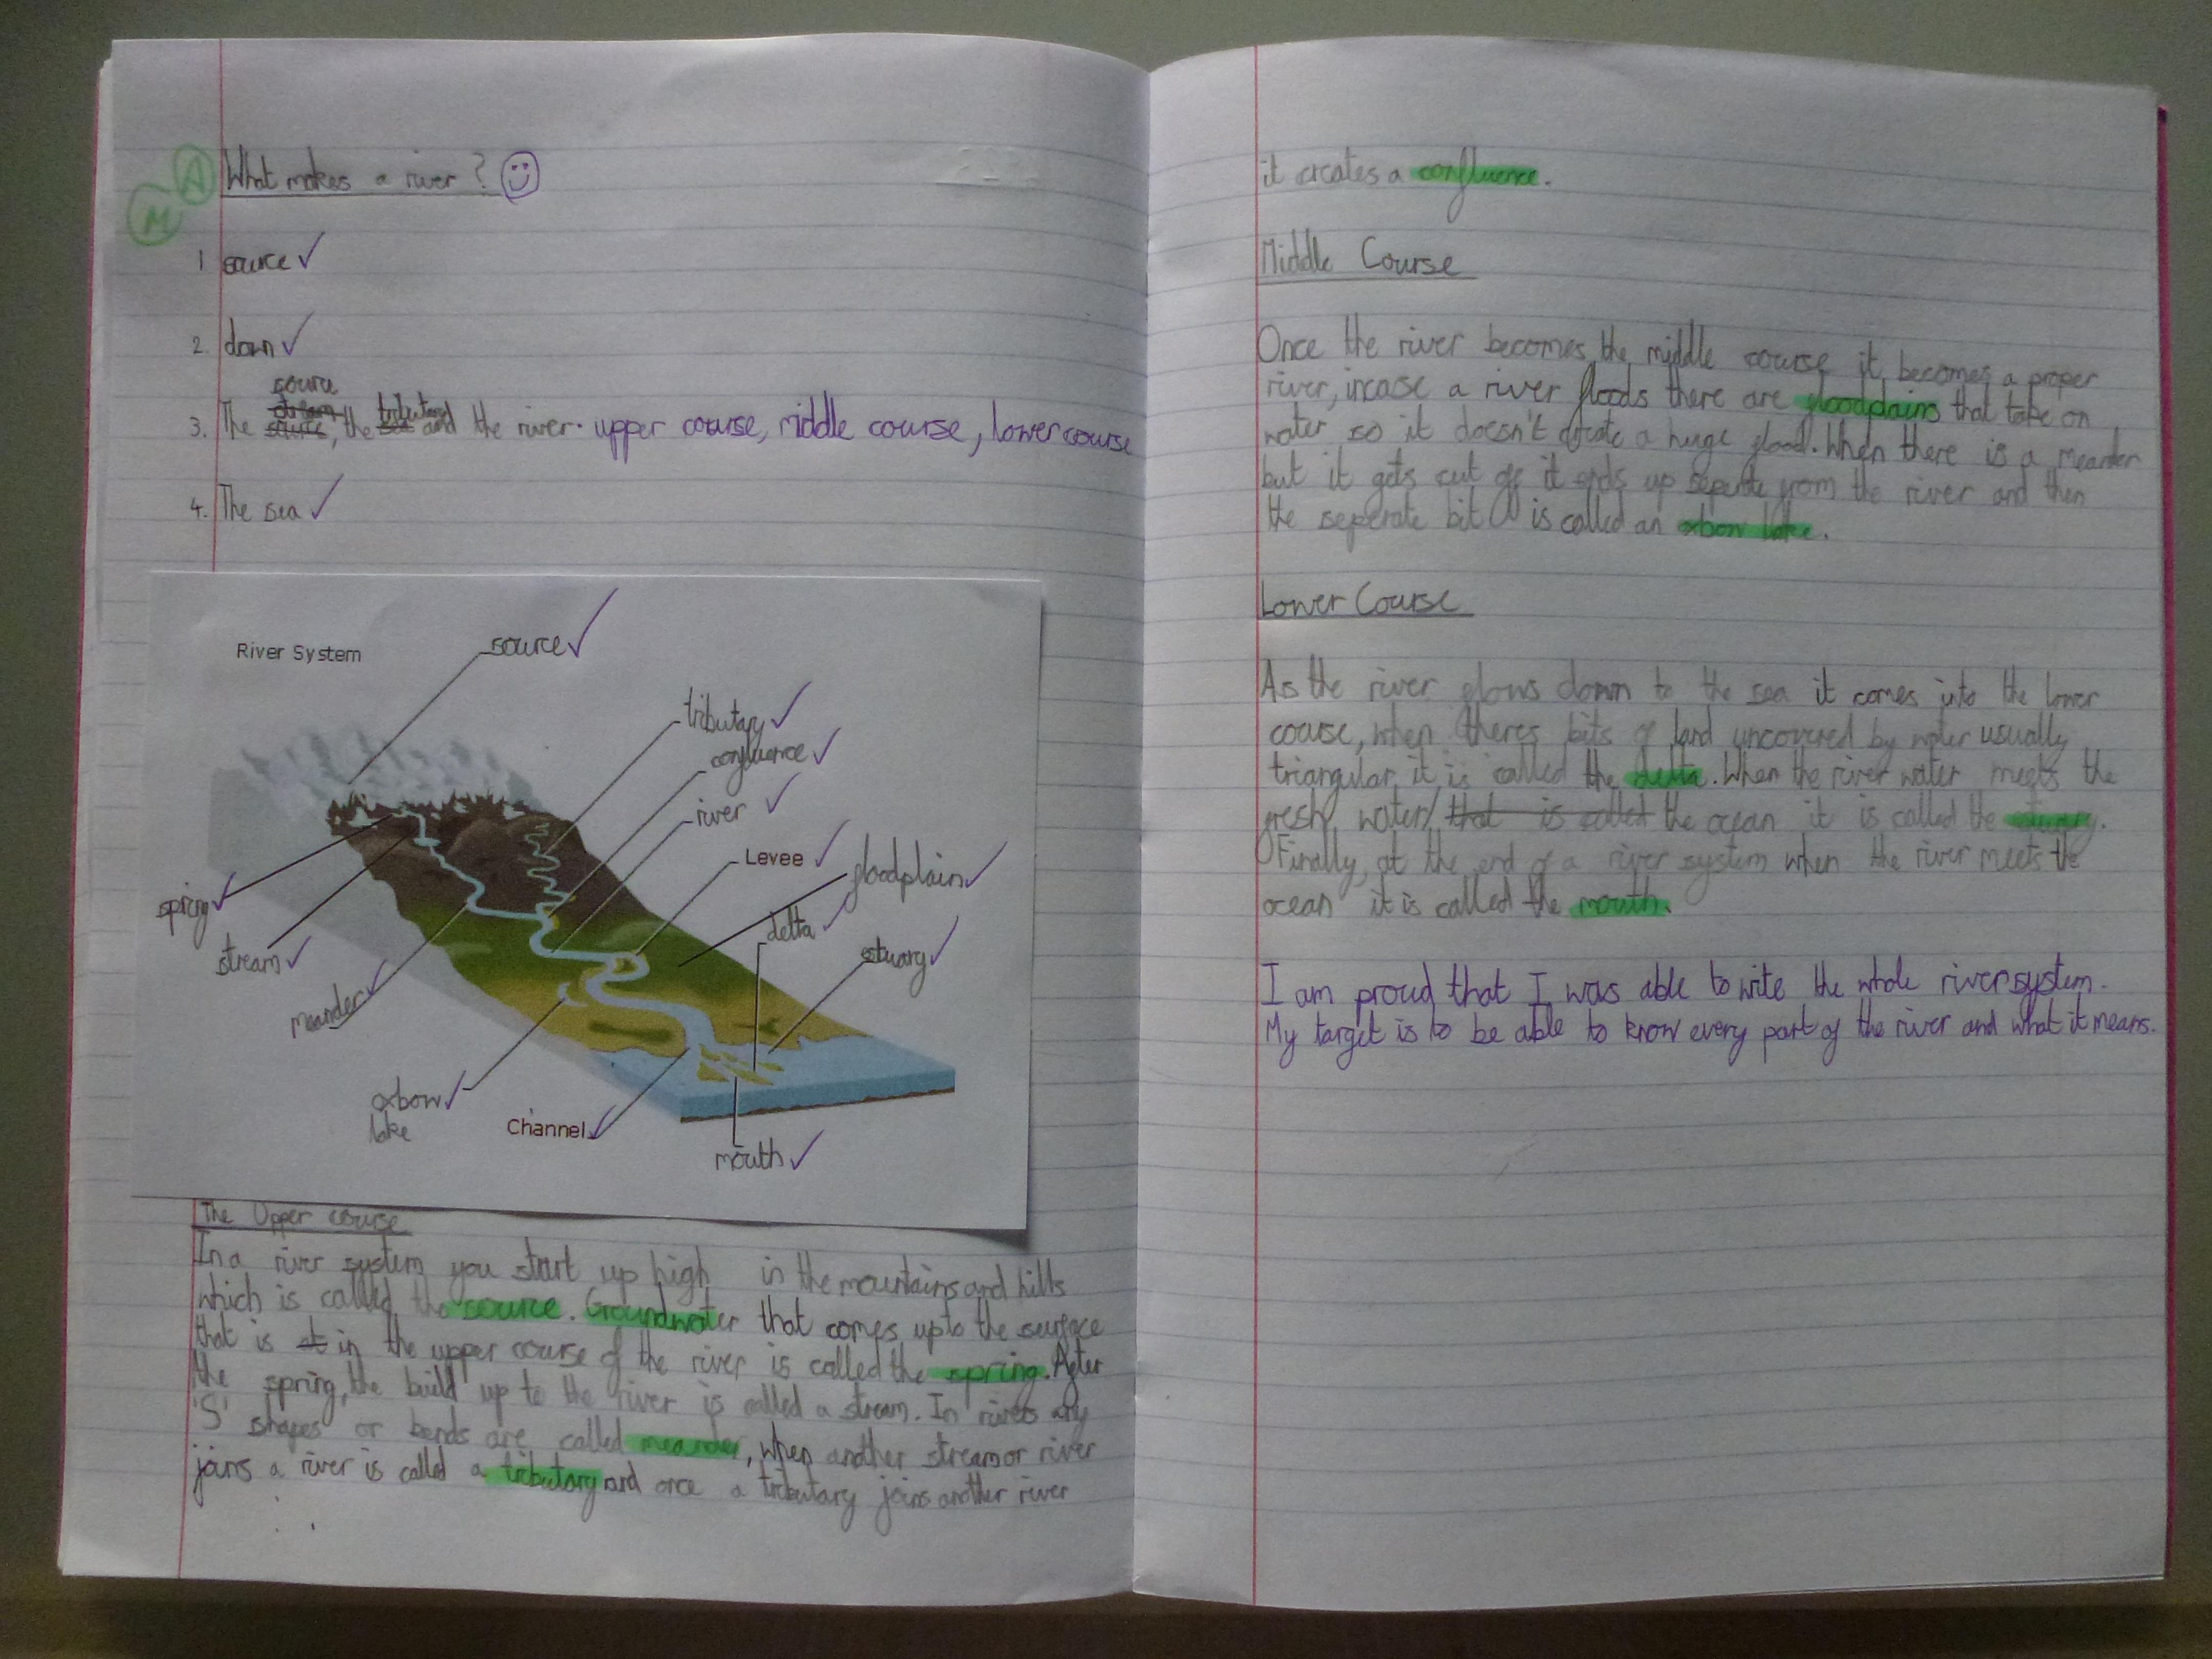 A
M
What makes a river?
1 source
2. down
soure
stream
3. The source, the tributary and the river. upper course, middle course, lower course
4. The sea
River System
source
tributary
confluence
river
Levee
floodplain
delta
estuary
spring
stream
meander
oxbow
lake
Channel
mouth
The Upper course
In a river system you start up high in the mountains and hills
which is called the source. Groundwater that comes up to the surface
that is at in the upper course of the river is called the spring. After
the spring, the build up to the river is called a stream. In rivers any
'S' shapes or bends are called meander, when another stream or river
joins a river is called a tributary and once a tributary joins another river
it creates a confluence.
Middle Course
Once the river becomes the middle course it becomes a proper
river, incase a river floods there are floodplains that take on
water so it doesn't create a huge flood. When there is a meander
but it gets cut off it ends up seperate from the river and then
the seperate bit is called an oxbow lake.
Lower Course
As the river flows down to the sea it comes into the lower
course, when theres bits of land uncovered by water usually
triangular it is called the delta. When the river water meets the
fresh water/ that is called the ocean it is called the estuary.
Finally, at the end of a river system when the river meets the
ocean it is called the mouth.
I am proud that I was able to write the whole river system.
My target is to be able to know every part of the river and what it means.